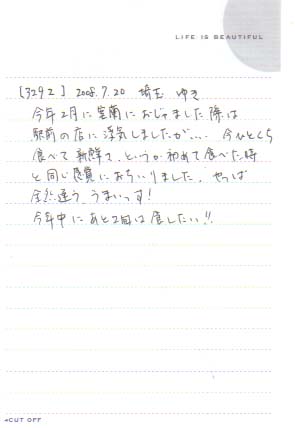 LIFE IS BEAUTIFUL
[3292] 2008.7.20 埼玉 ゆき
今年2月に室蘭におじゃました際は
駅前の店に浮気しましたが... 今ひとくち
食べて新鮮で、というか初めて食べた時
と同じ感覚におちいりました。やっぱ
全然違う、うまいっす!
今年中にあと2回は食したい!!
CUT OFF